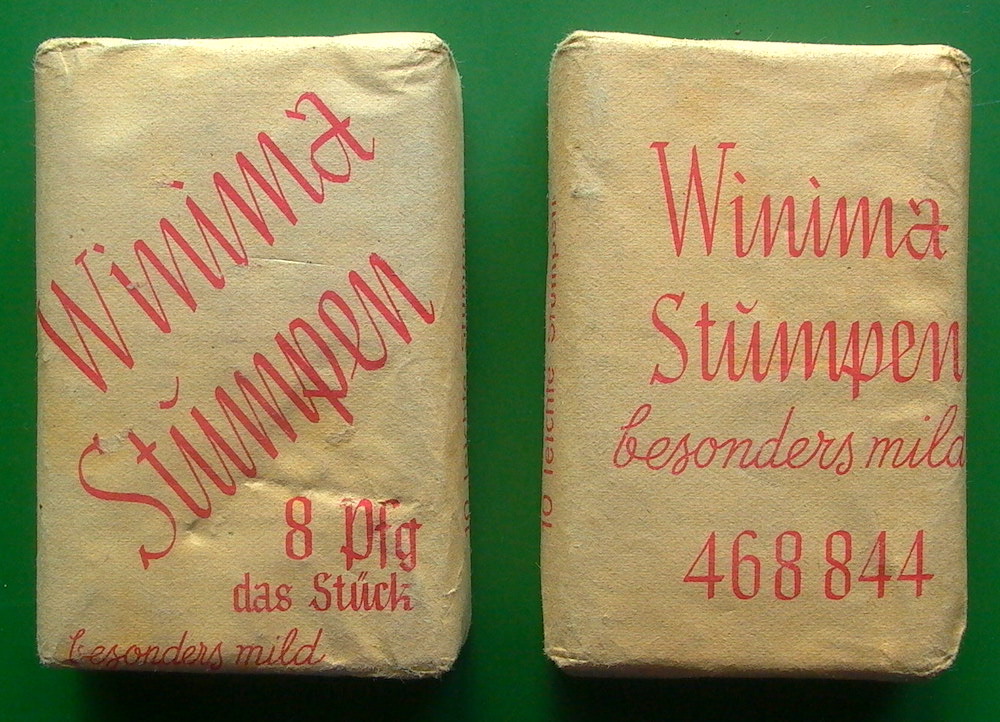 Winima
Stumpen
8 Pfg
das Stück
besonders mild
10 leichte Stumpen
Winima
Stumpen
besonders mild
468 844
10 leichte Stumpen